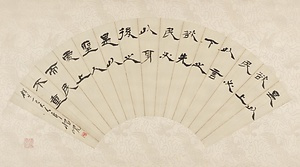 是以
欲上
民必
以言
下之
欲先
民必
以身
後之
是以
聖人
處上
而民
不重